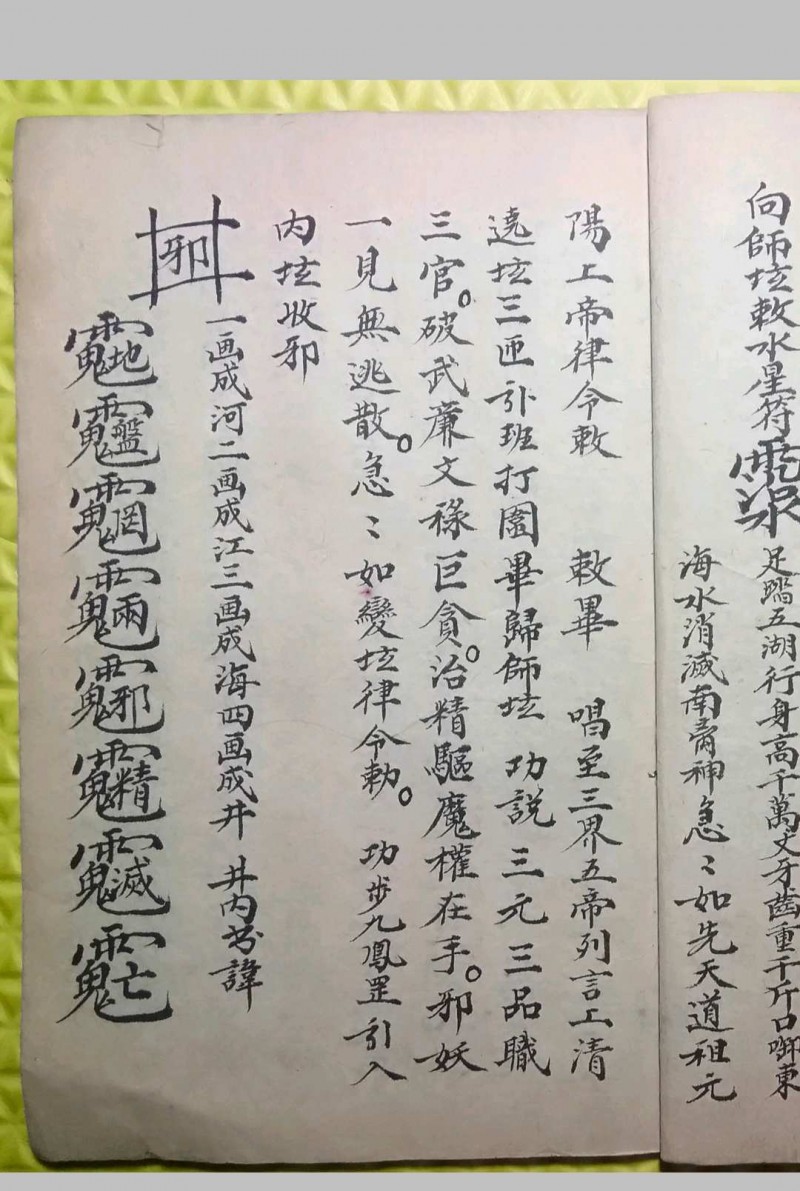 向師坛敕水星符
足踏五湖行身高千萬丈牙齒重千斤口啣東
海水消滅南
神急〻如先天道祖元
陽上帝律令敕　敕畢　唱至三界五帝列言上清
遶坛三匝引班打圍畢歸師坛　功說　三元三品職
三官。破武廉文祿巨貪。治精驅魔權在手。邪妖
一見無逃散。急〻如變坛律令勅。　功步九鳳罡引入
內坛收邪
邪
一画成河二画成江三画成海四画成井　井內书諱